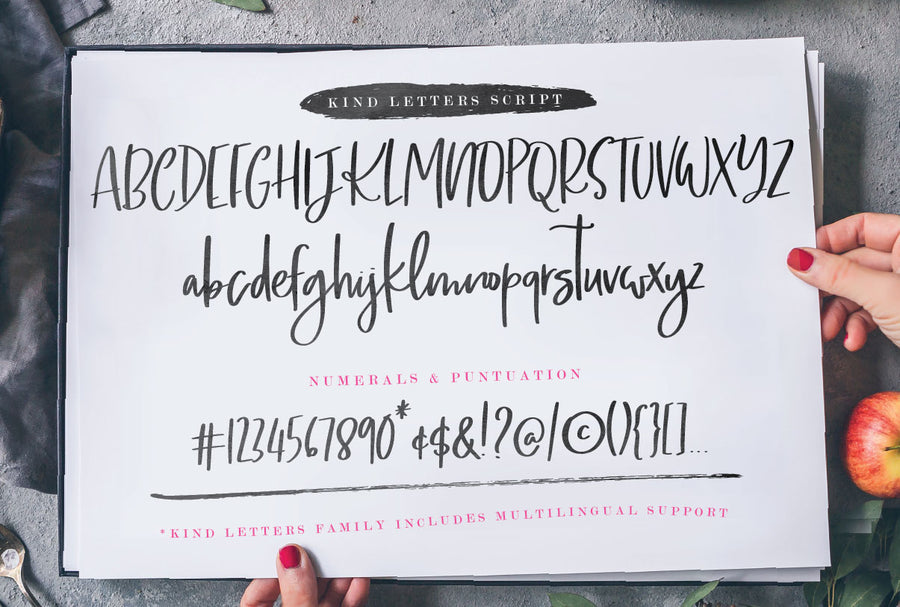 KIND LETTERS SCRIPT
ABCDEFGHIJKLMNOPQRSTUVWXYZ
abcdefghijklmnopqrstuvwxyz
NUMERALS & PUNTUATION
#1234567890*¢$&!?@/©(){}[]...
*KIND LETTERS FAMILY INCLUDES MULTILINGUAL SUPPORT